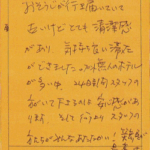 おそうじが行き届いていて
古いけどとても清潔感
があり、気持ち良い滞在
ができました。無人のホテル
が多い中、24時間スタッフの
方がいて下さるのは安心感が
あります。そしてスタッフ
の方たちがみんなあたたかい!